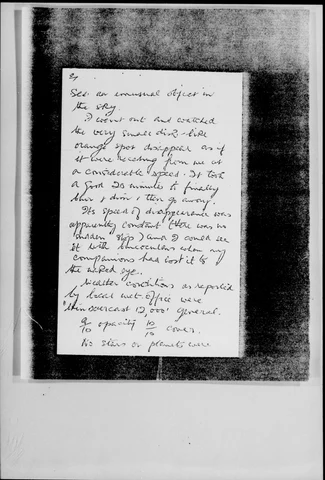 2/
See an unusual object in
the sky.
I went out and watched
the very small disk-like
orange spot disappear as if
it were receding from me at
a considerable speed. It took
a good 20 minutes to finally
then go away.
Its speed of disappearance was
apparently constant (there was no
sudden stop) and I could see
it with binoculars when my
companions had lost it to
the naked eye.
Weather conditions as reported
by local met office were
thin overcast 12,000' general.
opacity 10/10 cover.
No stars or planets were